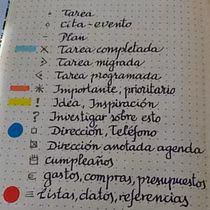 • Tarea
o Cita-evento
– Plan
x Tarea completada
> Tarea migrada
< Tarea programada
* Importante, prioritario
! Idea, Inspiración
? Investigar sobre esto
Dirección, Teléfono
Dirección anotada agenda
Cumpleaños
€ gastos, compras, presupuestos
≡ Listas, datos, referencias